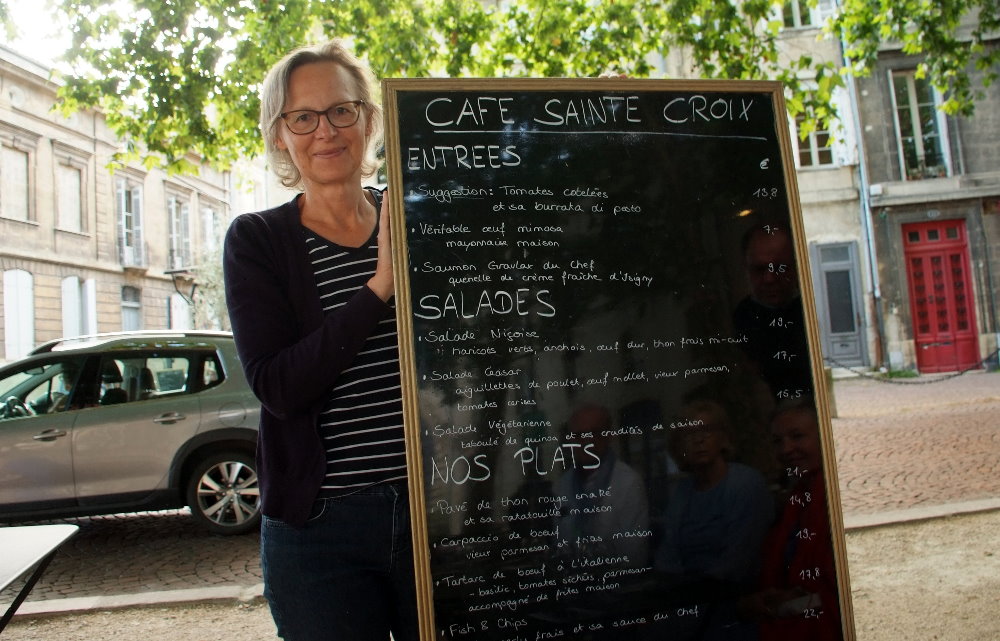 CAFE SAINTE CROIX
ENTREES €
• Suggestion: Tomates cotelées 13,8
et sa burrata di pesto
• Véritable œuf mimosa 7,-
mayonnaise maison
• Saumon Gravlax du Chef 9,5
quenelle de crème fraîche d'Isigny
SALADES
• Salade Niçoise 19,-
haricots verts, anchois, œuf dur, thon frais mi-cuit
• Salade Ceasar 17,-
aiguillettes de poulet, œuf mollet, vieux parmesan,
tomates cerises
• Salade Végétarienne 16,5
taboulé de quinoa et ses crudités de saison
NOS PLATS
• Pavé de thon rouge snaké 21,-
et sa ratatouille maison
• Carpaccio de bœuf 14,8
vieux parmesan et frites maison
• Tartare de bœuf à L'italienne 19,-
- basilic, tomates séchés, parmesan-
accompagné de frites maison 17,8
• Fish & Chips 22,-
frais et sa sauce du chef